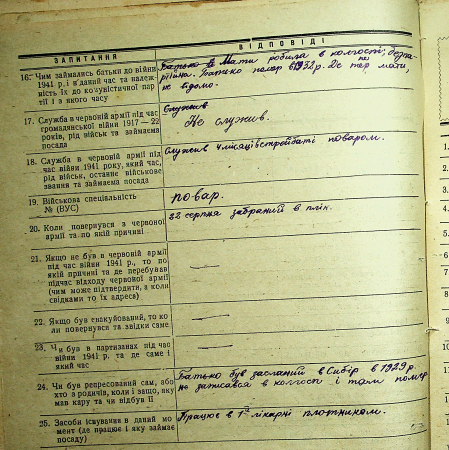 ЗАПИТАННЯ ВІДПОВІДІ
16. Чим займались батьки до війни
1941 р. і в даний час та належ-
ність їх до комуністичної пар-
тії і з якого часу
Батько й Мати робила в колгоспі, безпа-
рійна. Батько помер в 1932 р. Де тепер мати,
не відомо.
17. Служба в червоній армії під час
громадянської війни 1917—22
роках, рід військ та займаєма
посада
Служив
Не служив.
18. Служба в червоній армії під
час війни 1941 року, який час,
рід військ, останнє військове
звання та займаєма посада
Служив 4 місяці в стройбаті поваром.
19. Військова спеціальність
№ (ВУС)
повар.
20. Коли повернувся з червоної
армії та по якій причині
22 серпня забраний в плін.
21. Якщо не був в червоній армії
під час війни 1941 р., то по
якій причині та де перебував
підчас відходу червоної армії
(чим може підтвердити, а коли
свідками то їх адреса)
22. Якщо був евакуйований, то ко-
ли повернувся та звідки саме
23. Чи був в партизанах під час
війни 1941 р. та де саме і
який час
24. Чи був репресований сам, або
хто з родичів, коли і защо, яку
мав кару та чи відбув її
Батько був засланий в Сибір в 1929 р.
не записався в колгосп і там помер
25. Засоби існування в даний мо-
мент (де працює і яку займає
посаду)
Працює в 1й лікарні плотником.